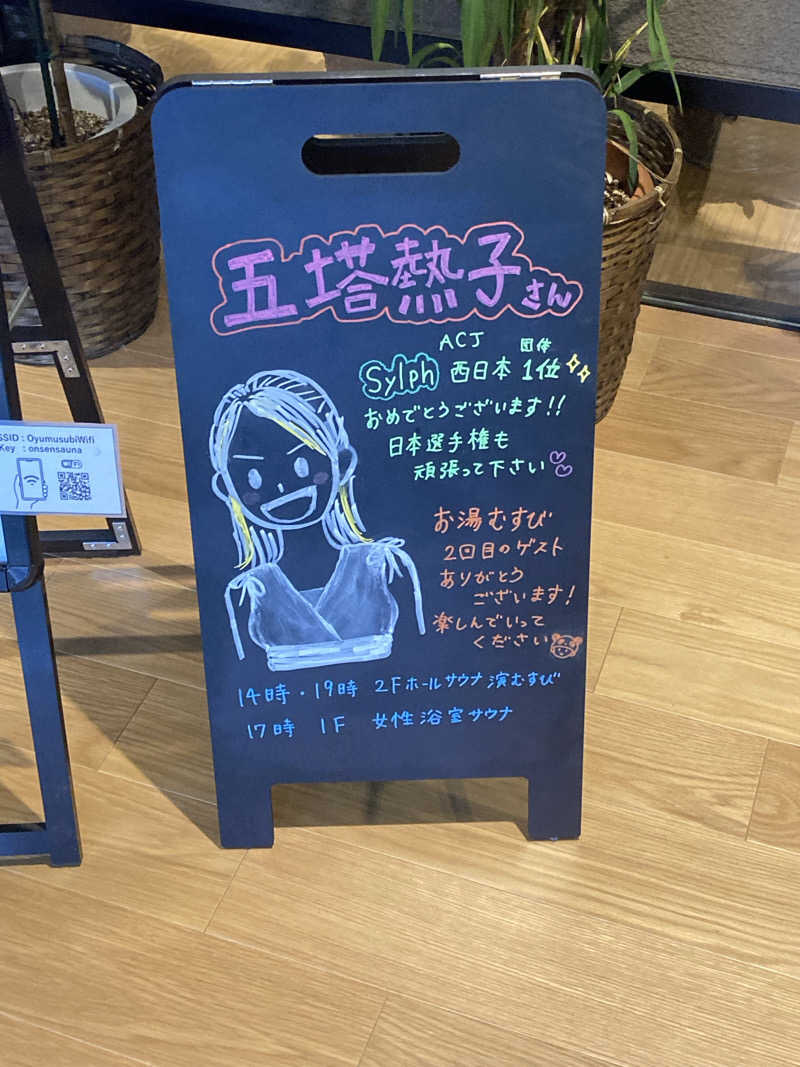 五塔熱子さん
ACJ 団体
Sylph 西日本 1位
おめでとうございます!!
日本選手権も
頑張って下さい
お湯むすび
2回目のゲスト
ありがとう
ございます!
楽しんでいって
ください
14時・19時 2Fホールサウナ 演むすび
17時 1F 女性浴室サウナ
SSID : OyumusubiWifi
Key : onsensauna